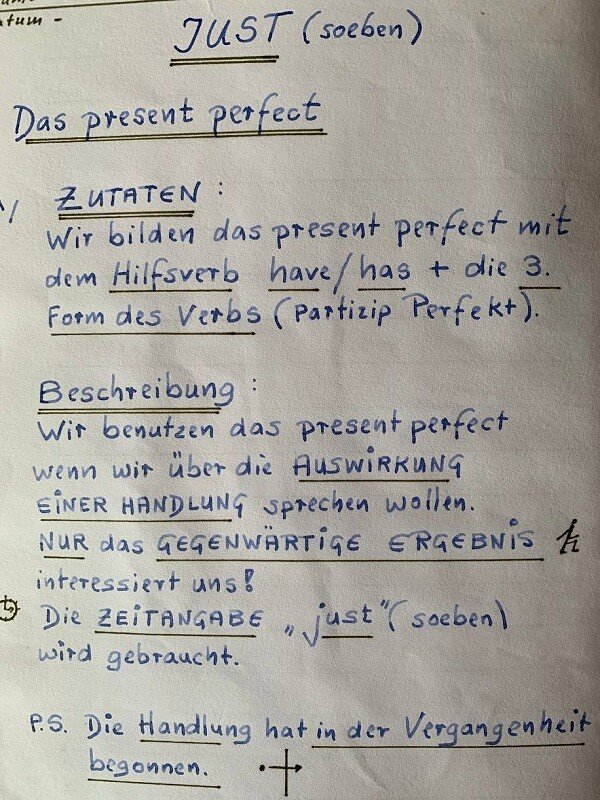 atum -
JUST (soeben)
Das present perfect
ZUTATEN :
Wir bilden das present perfect mit
dem Hilfsverb have/has + die 3.
Form des Verbs (Partizip Perfekt).
Beschreibung :
Wir benutzen das present perfect
wenn wir über die AUSWIRKUNG
EINER HANDLUNG sprechen wollen.
NUR das GEGENWÄRTIGE ERGEBNIS
interessiert uns!
Die ZEITANGABE „just" (soeben)
wird gebraucht.
P.S. Die Handlung hat in der Vergangenheit
begonnen.